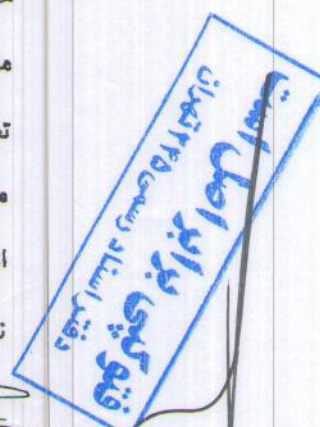 فتوکپی برابر اصل است
دفتر اسناد رسمی ۲۴۵ تهران